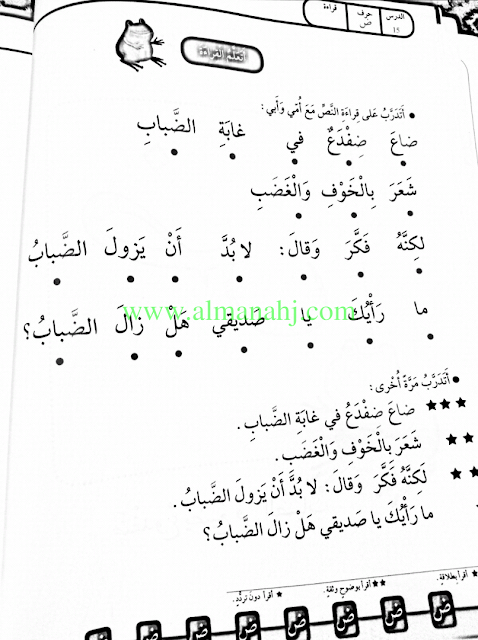 الدرس 15 حرف ض قراءة
أَتَعَلَّمُ القِراءَةَ
• أَتَدَرَّبُ عَلى قِراءَةِ النَّصِّ مَعَ أُمّي وَأَبي:
ضاعَ ضِفْدَعٌ في غابَةِ الضَّبابِ
شَعَرَ بِالْخَوْفِ وَالْغَضَبِ
لكِنَّهُ فَكَّرَ وَقالَ: لا بُدَّ أَنْ يَزولَ الضَّبابُ
www.almanahj.com
ما رَأْيُكَ يا صَديقي هَلْ زالَ الضَّبابُ؟
• أَتَدَرَّبُ مَرَّةً أُخْرى:
★★★ ضاعَ ضِفْدَعُ في غابَةِ الضَّبابِ.
★★ شَعَرَ بِالْخَوْفِ وَالْغَضَبِ.
★★ لَكِنَّهُ فَكَّرَ وَقالَ: لا بُدَّ أَنْ يَزولَ الضَّبابُ.
ما رَأْيُكَ يا صَديقي هَلْ زالَ الضَّبابُ؟
★ أقرأ دون تردّدٍ. ★★ أقرأ بوضوحٍ وثقةٍ. أقرأ بطلاقةٍ.
ض ض ض ض ض ض ض ض